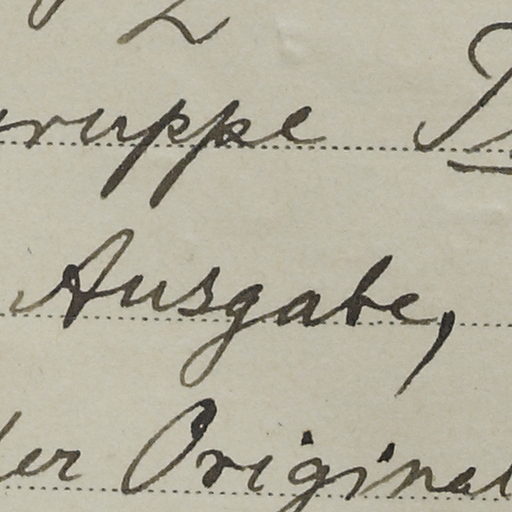 gruppe
Ausgabe,
der Original